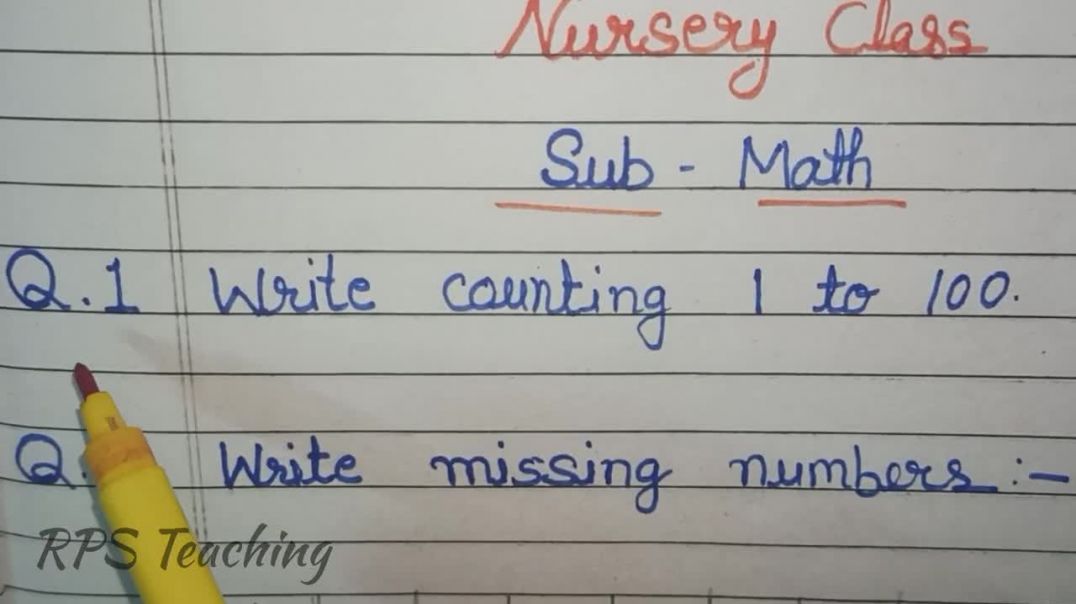 Nursery Class
Sub - Math
Q.1 Write counting 1 to 100.
Q. Write missing numbers :-
RPS Teaching